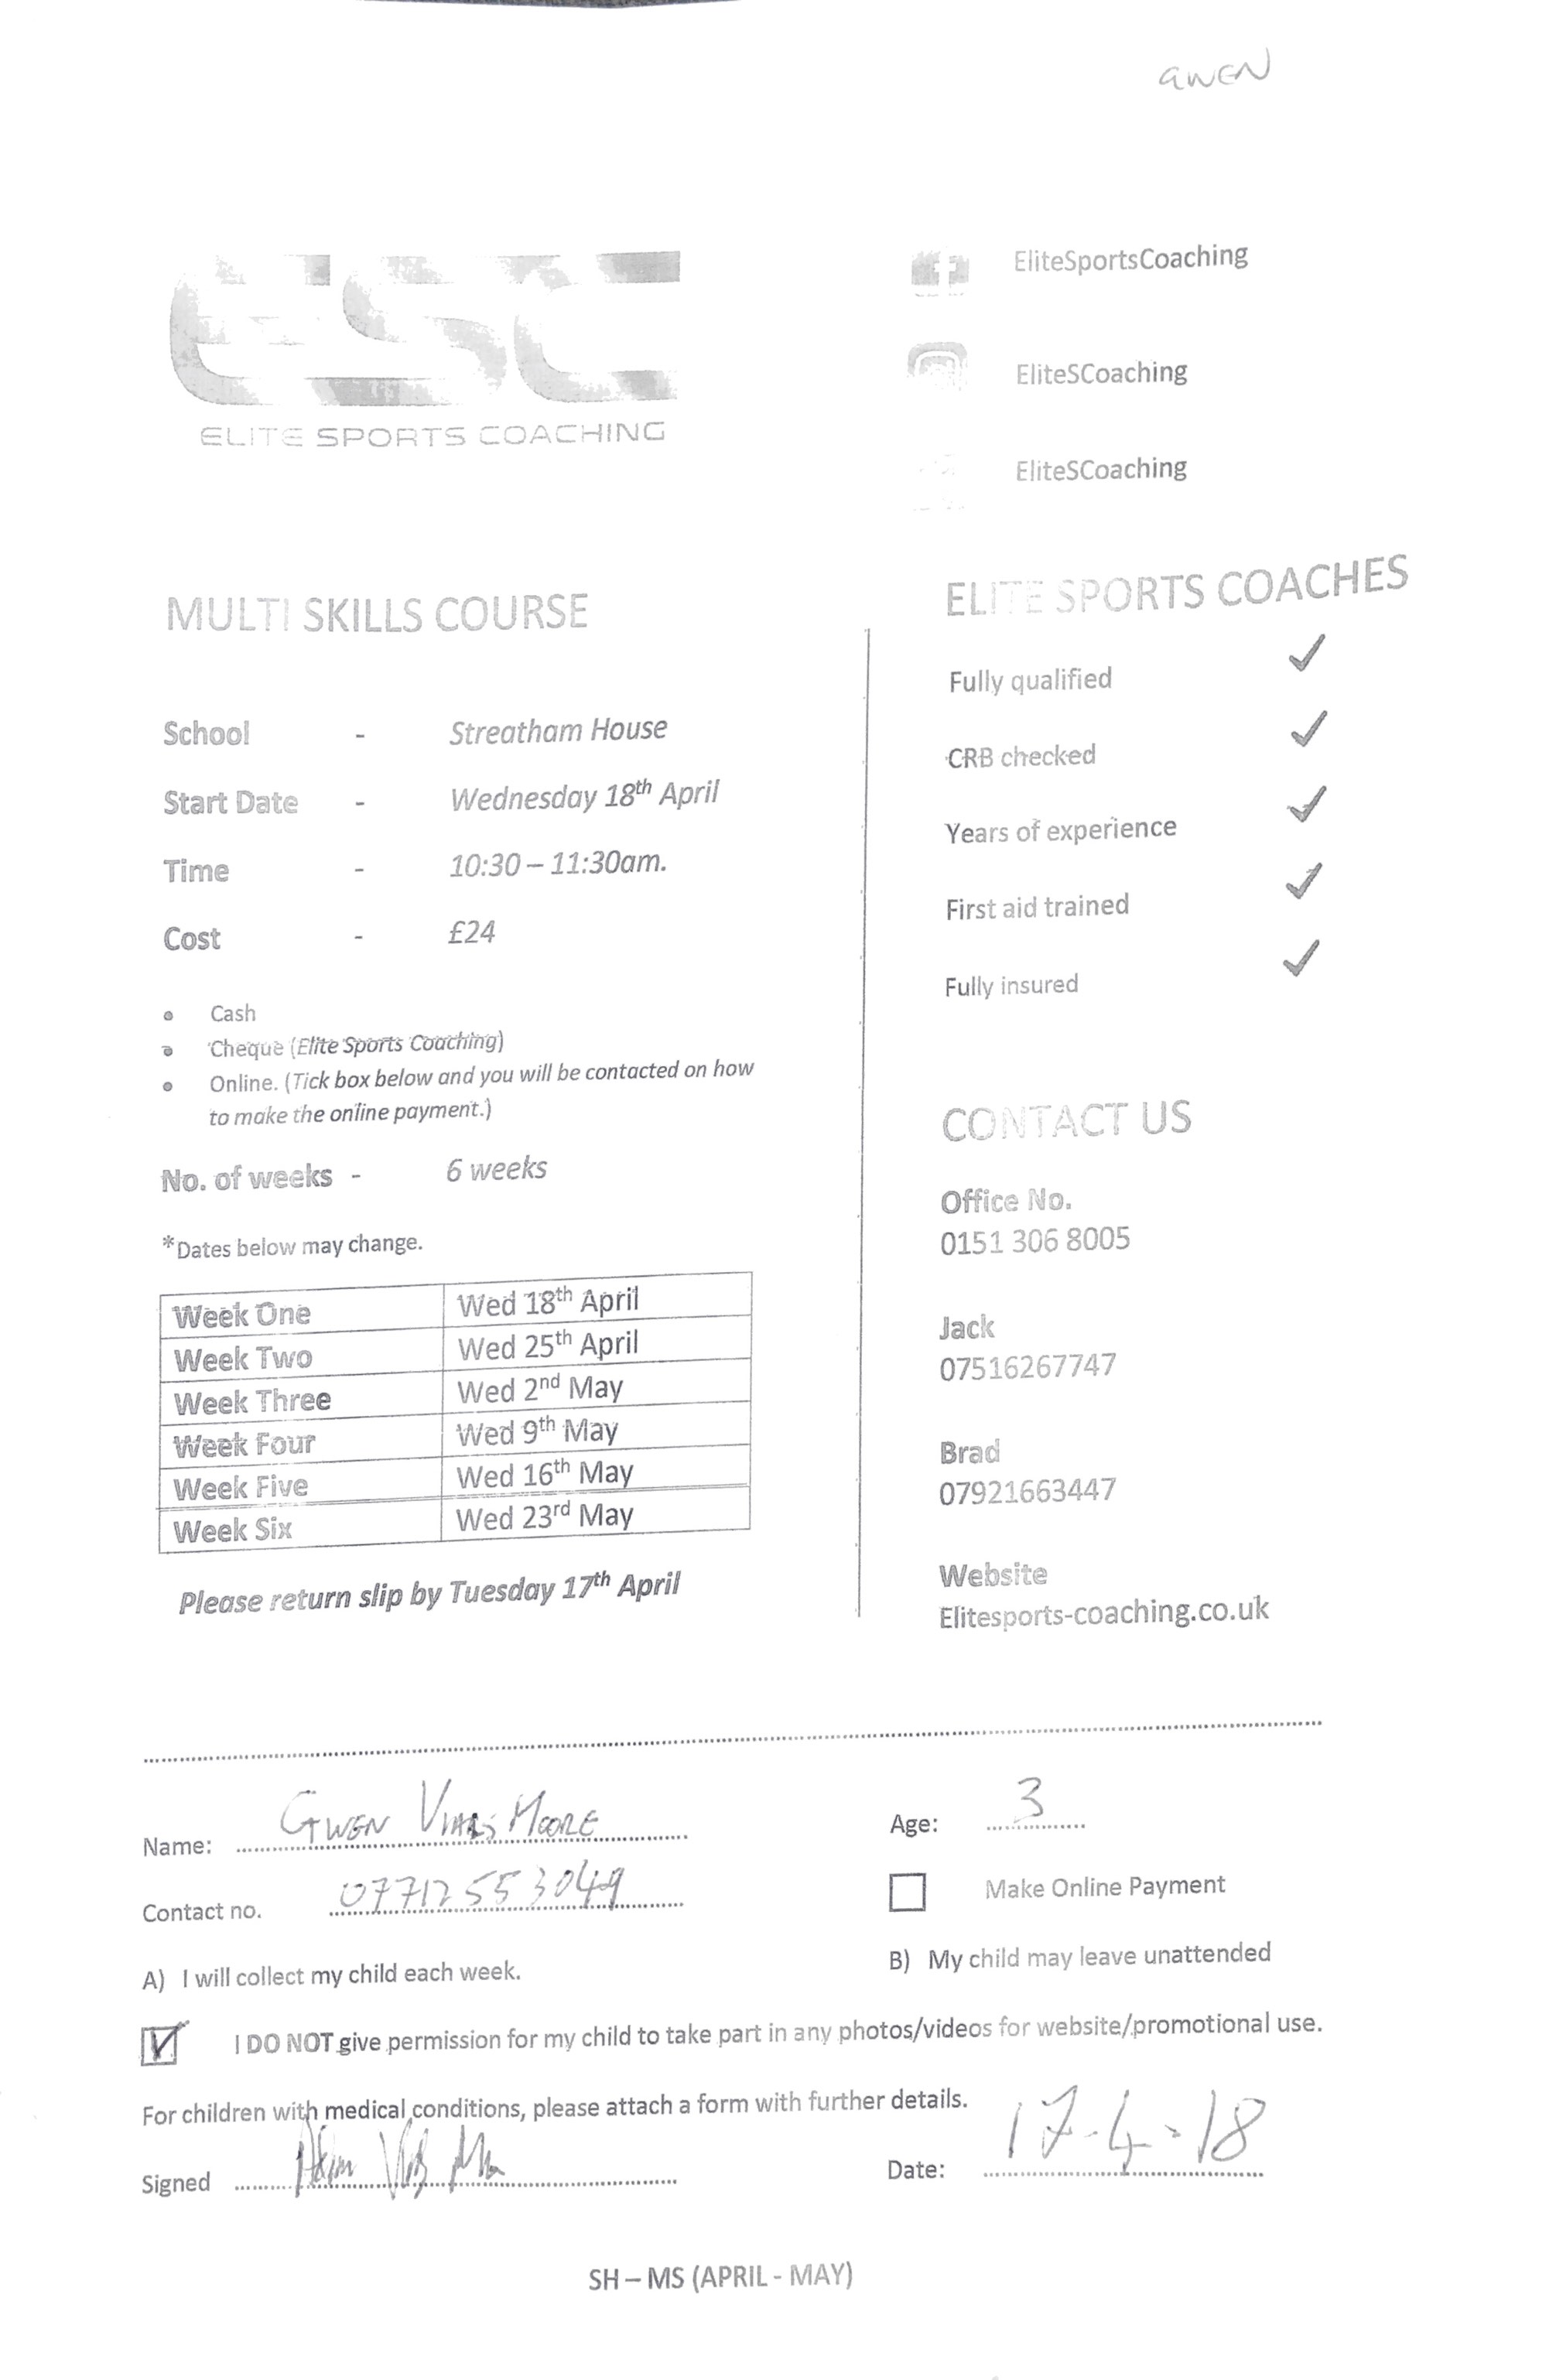 GWEN
esc
ELITE SPORTS COACHING
EliteSportsCoaching
EliteSCoaching
EliteSCoaching
MULTI SKILLS COURSE
School - Streatham House
Start Date - Wednesday 18th April
Time - 10:30 – 11:30am.
Cost - £24
• Cash
• Cheque (Elite Sports Coaching)
• Online. (Tick box below and you will be contacted on how
to make the online payment.)
No. of weeks - 6 weeks
*Dates below may change.
Week One Wed 18th April
Week Two Wed 25th April
Week Three Wed 2nd May
Week Four Wed 9th May
Week Five Wed 16th May
Week Six Wed 23rd May
Please return slip by Tuesday 17th April
ELITE SPORTS COACHES
Fully qualified ✓
CRB checked ✓
Years of experience ✓
First aid trained ✓
Fully insured ✓
CONTACT US
Office No.
0151 306 8005
Jack
07516267747
Brad
07921663447
Website
Elitesports-coaching.co.uk
Name: GWEN MOORE Age: 3
Contact no. 07712553049 Make Online Payment
A) I will collect my child each week. B) My child may leave unattended
I DO NOT give permission for my child to take part in any photos/videos for website/promotional use.
For children with medical conditions, please attach a form with further details.
Signed Date: 17-4-18
SH – MS (APRIL - MAY)